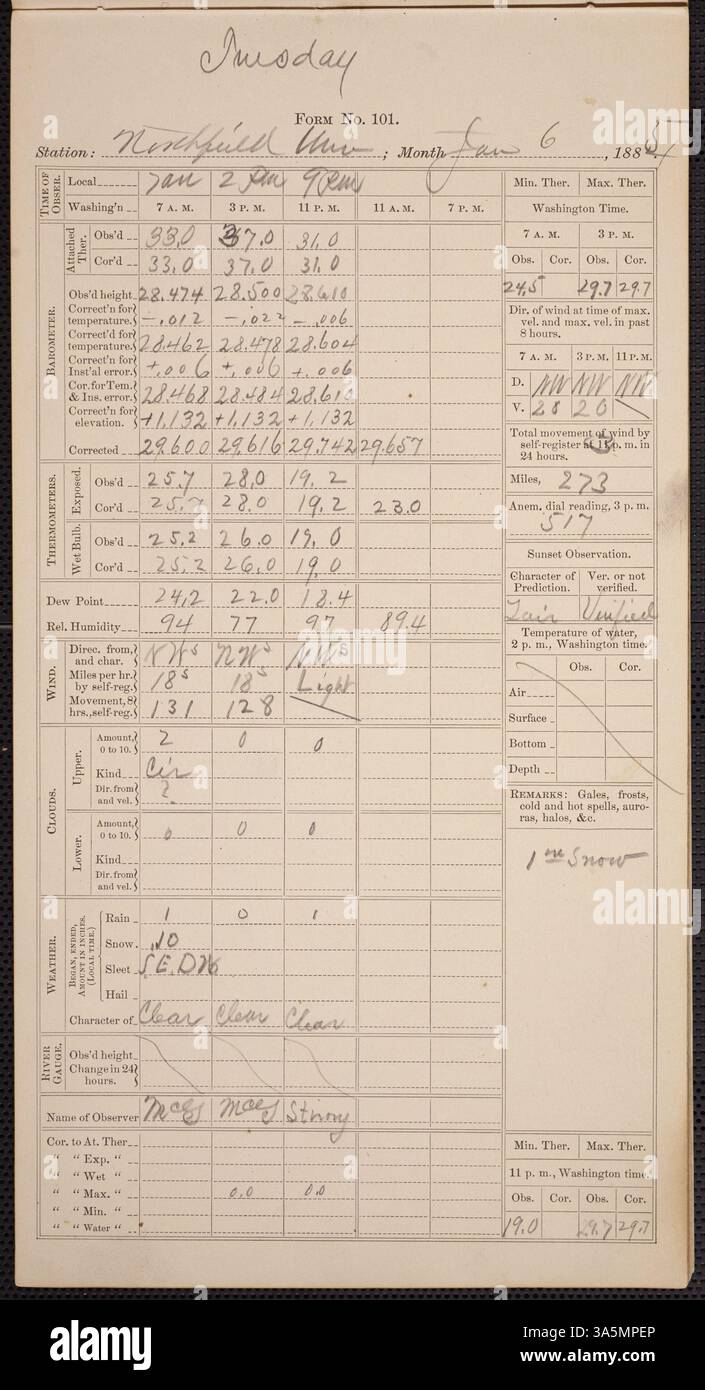 Tuesday
Form No. 101.
Station: Northfield Minn ; Month Jan 6 , 1885
TIME OF OBSER. Local 7 am 2 Pm 9 Pm
Washing'n 7 A. M. 3 P. M. 11 P. M. 11 A. M. 7 P. M.
BAROMETER.
Attached Ther.
Obs'd 33.0 37.0 31.0
Cor'd 33.0 37.0 31.0
Obs'd height 28.474 28.500 28.610
Correct'n for temperature. -.012 -.022 -.006
Correct'd for temperature. 28.462 28.478 28.604
Correct'n for Inst'al error. +.006 +.006 +.006
Cor. for Tem. & Ins. error. 28.468 28.484 28.610
Correct'n for elevation. +1.132 +1.132 +1.132
Corrected 29.600 29.616 29.742 29.657
THERMOMETERS.
Exposed.
Obs'd 25.7 28.0 19.2
Cor'd 25.7 28.0 19.2 23.0
Wet Bulb.
Obs'd 25.2 26.0 19.0
Cor'd 25.2 26.0 19.0
Dew Point 24.2 22.0 18.4
Rel. Humidity 94 77 97 89.4
WIND.
Direc. from, and char. NWs NWs NWs
Miles per hr. by self-reg. 18s 18s Light
Movement, 8 hrs., self-reg. 131 128
CLOUDS.
Upper.
Amount, 0 to 10. 2 0 0
Kind Cir
Dir. from and vel. ?
Lower.
Amount, 0 to 10. 0 0 0
Kind
Dir. from and vel.
WEATHER.
BEGAN, ENDED, AMOUNT IN INCHES. (LOCAL TIME.)
Rain 1 0 1
Snow .10
Sleet S.E.D.N.
Hail
Character of Clear Clear Clear
RIVER GAUGE.
Obs'd height
Change in 24 hours.
Name of Observer McEJ McEJ
Cor. to At. Ther
" " Exp. "
" " Wet "
" " Max. " 0.0 0.0
" " Min. "
" " Water "
Min. Ther. Max. Ther.
Washington Time.
7 A. M. 3 P. M.
Obs. Cor. Obs. Cor.
24.5 29.7 29.7
Dir. of wind at time of max. vel. and max. vel. in past 8 hours.
7 A. M. 3 P. M. 11 P. M.
D. NW NW NW
V. 28 20
Total movement of wind by self-register at 3 p. m. in 24 hours.
Miles, 273
Anem. dial reading, 3 p. m.
517
Sunset Observation.
Character of Prediction. Ver. or not verified.
Fair Verified
Temperature of water, 2 p. m., Washington time.
Obs. Cor.
Air
Surface
Bottom
Depth
REMARKS: Gales, frosts, cold and hot spells, auroras, halos, &c.
Snow
Min. Ther. Max. Ther.
11 p. m., Washington time.
Obs. Cor. Obs. Cor.
19.0 29.7 29.7
alamy
Image ID: 3A5MPEP
www.alamy.com